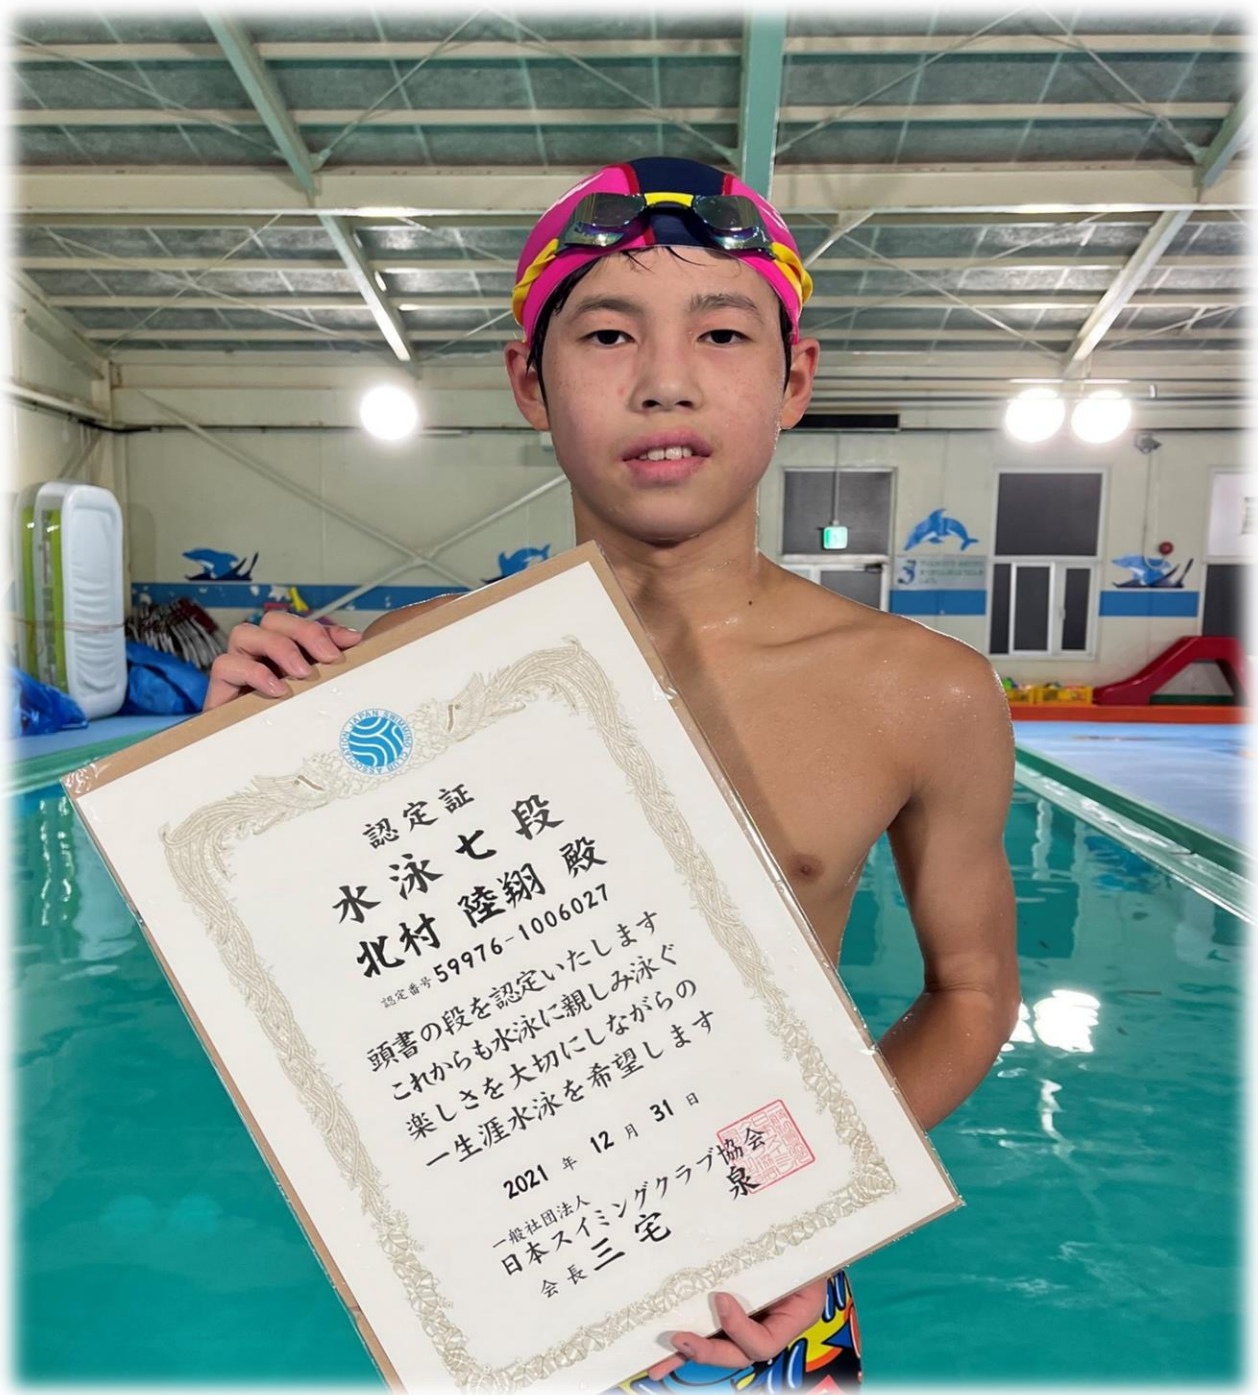 JAPAN SWIMMING CLUB ASSOCIATION
認定証
水泳七段
北村 陸翔 殿
認定番号 59976-1006027
頭書の段を認定いたします
これからも水泳に親しみ泳ぐ
楽しさを大切にしながらの
一生涯水泳を希望します
2021 年 12 月 31 日
一般社団法人
日本スイミングクラブ協会
会長 三宅 泉